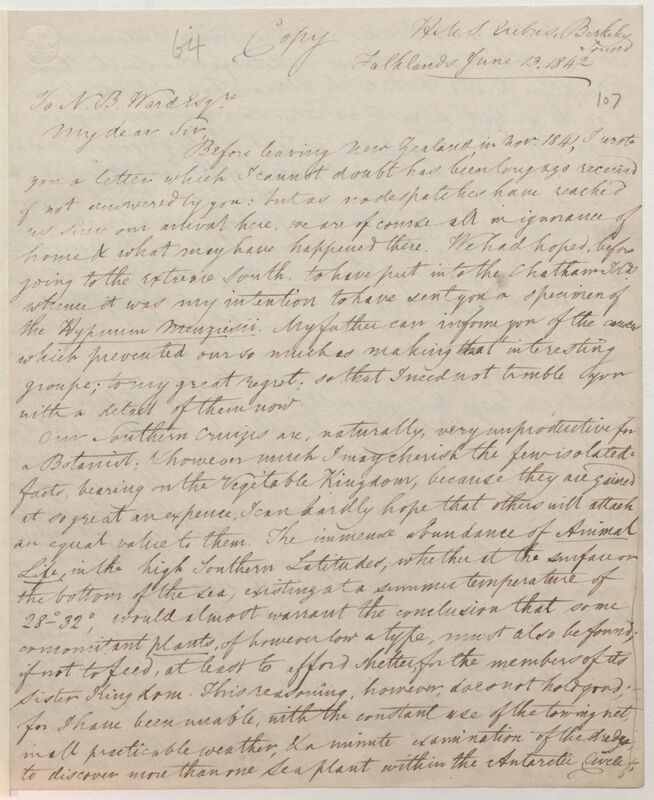 64
Copy
H.M.S. Erebus, Berkeley
Sound
Falklands June 13. 1842
107
To N. B. Ward Esqre
My dear Sir,
Before leaving New Zealand, in Nov. 1841, I wrote
you a letter which I cannot doubt has been long ago received
if not answered by you: but as no despatches have reached
us since our arrival here, we are of course all in ignorance of
home & what may have happened there. We had hoped, before
going to the extreme South, to have put in to the Chatham Isds
whence it was my intention to have sent you a specimen of
the Hypnum Menziesii. My father can inform you of the causes
which prevented our so much as making that interesting
groupe; to my great regret; so that I need not trouble you
with a detail of them now.
Our Southern Cruizes are, naturally, very unproductive for
a Botanist; & however much I may cherish the few isolated
facts, bearing on the Vegetable Kingdom, because they are gained
at so great an expence, I can hardly hope that others will attach
an equal value to them. The immense abundance of Animal
Life, in the high Southern Latitudes, whether at the surface or
the bottom of the sea, existing at a summer temperature of
28°-32°, would almost warrant the conclusion that some
concomitant plants, of however low a type, must also be found;
if not to feed, at least to afford shelter for the members of its
sister Kingdom. This reasoning, however, does not hold good:-
for I have been unable, with the constant use of the towing net,
in all practicable weather, & a minute examination of the dredge,
to discover more than one Sea plant within the Antarctic Circle